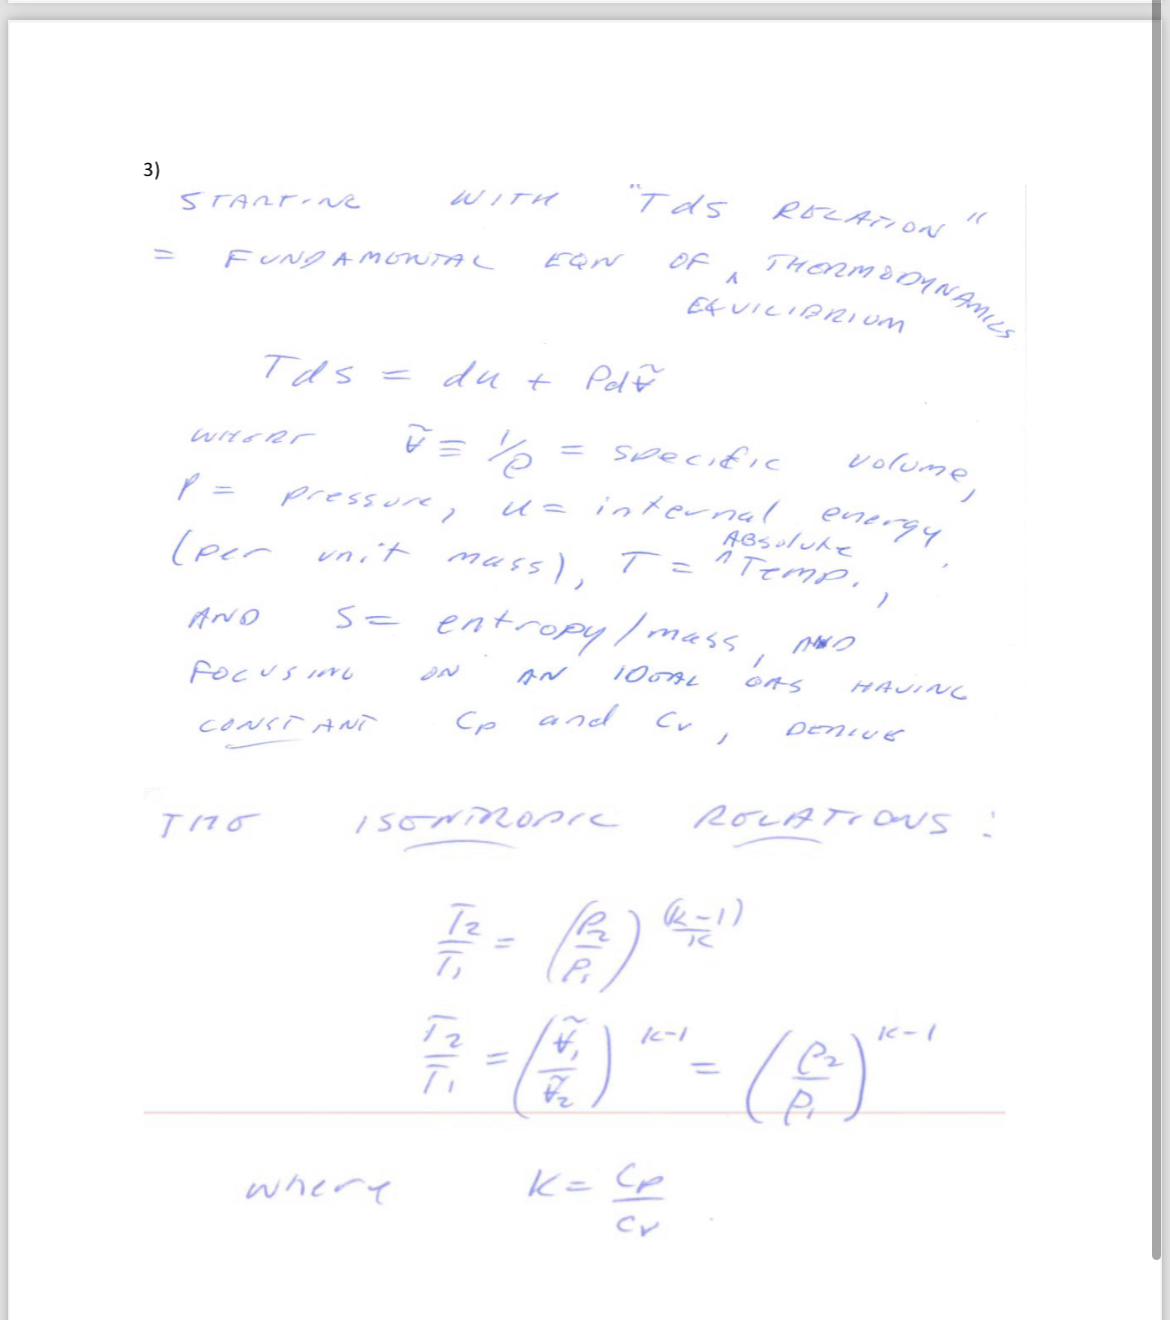 3)
STARTING WITH "Tds RELATION"
= FUNDAMENTAL EQN OF ^ THERMODYNAMICS
EQUILIBRIUM
Tds = du + Pdṽ
WHERE ṽ ≡ 1/ρ = specific volume,
P = pressure, u = internal energy
(per unit mass), T = ^ ABSolute Temp.,
AND S = entropy/mass, AND
FOCUSING ON AN IDEAL GAS HAVING
CONSTANT Cp and Cv, DERIVE
THE ISENTROPIC RELATIONS:
T2/T1 = (P2/P1)^((k-1)/k)
T2/T1 = (ṽ1/ṽ2)^(k-1) = (ρ2/ρ1)^(k-1)
where k = Cp/Cv